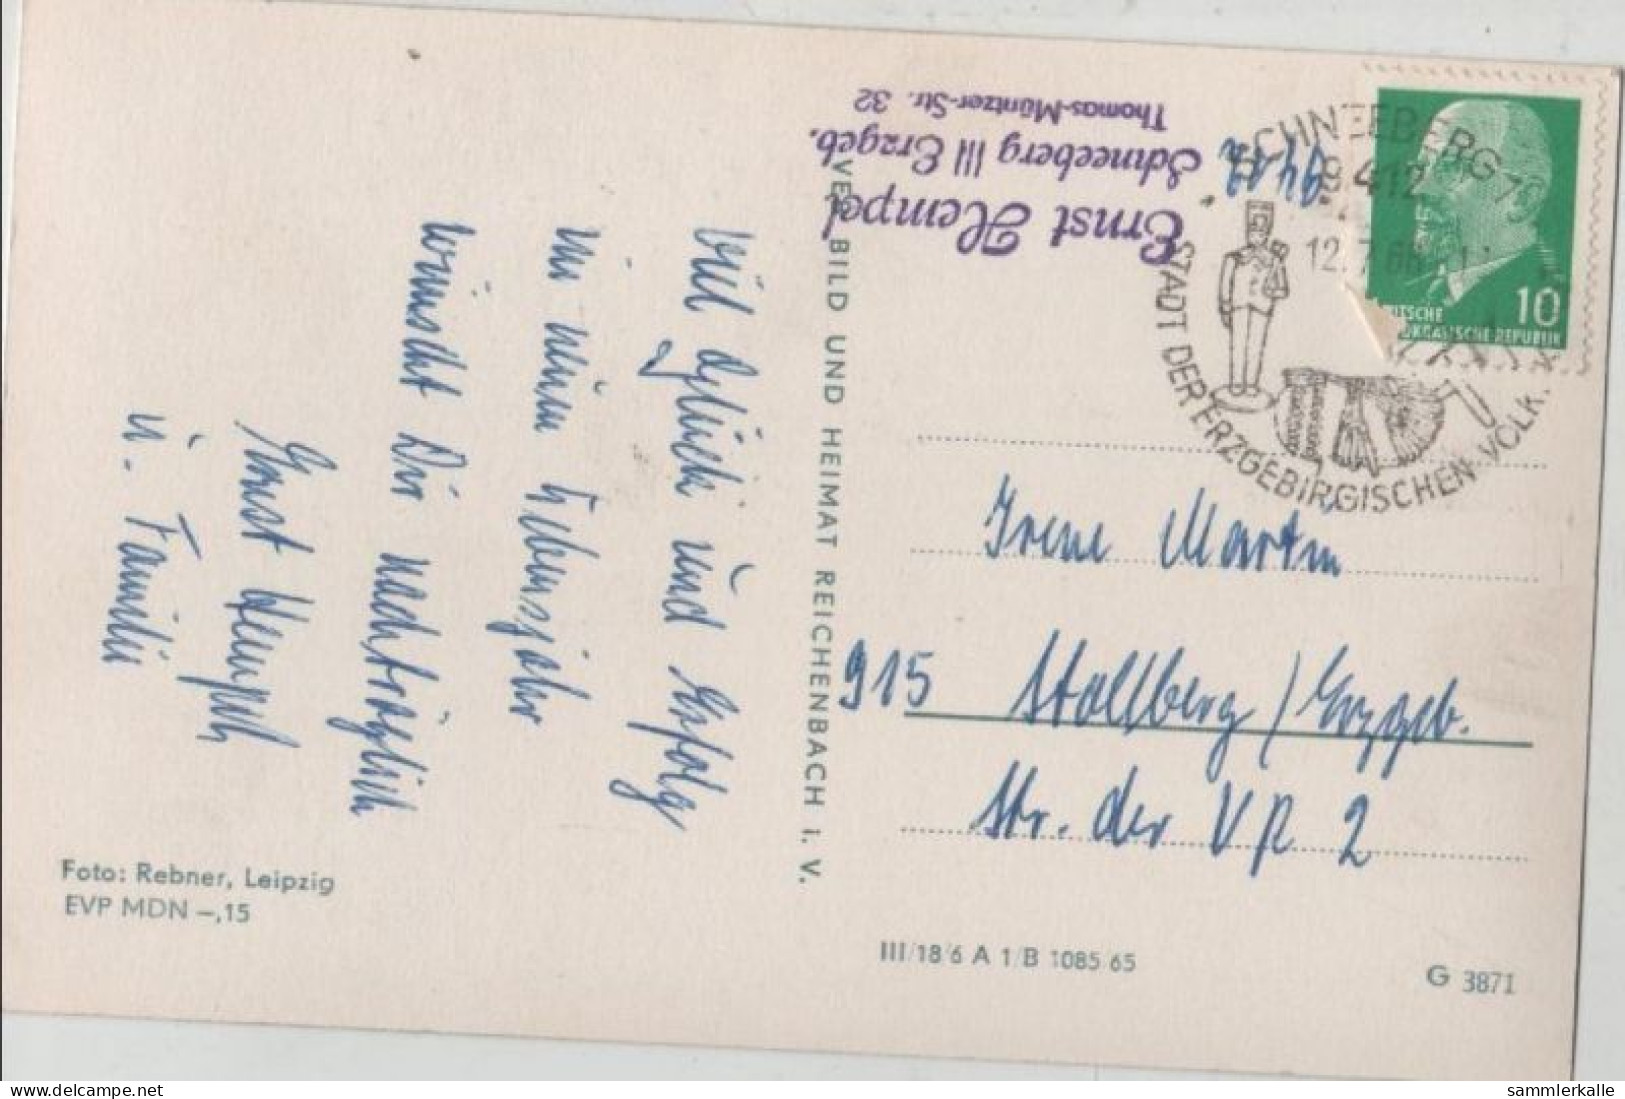 Viel Glück und Erfolg
im neuen Lebensjahr
wünscht Dir nachträglich
Ernst Hempel
u. Familie
Foto: Rebner, Leipzig
EVP MDN –,15
VEB BILD UND HEIMAT REICHENBACH I. V.
Ernst Hempel
Schneeberg III Erzgeb.
Thomas-Müntzer-Str. 32
9412
SCHNEEBERG
9412
12.7.66
STADT DER ERZGEBIRGISCHEN VOLK
10
DEUTSCHE
DEMOKRATISCHE REPUBLIK
Irene Martin
915 Stollberg / Erzgeb.
Str. der VR 2
III/18/6 A 1/B 1085/65
G 3871
sammlerkalle
www.delcampe.net